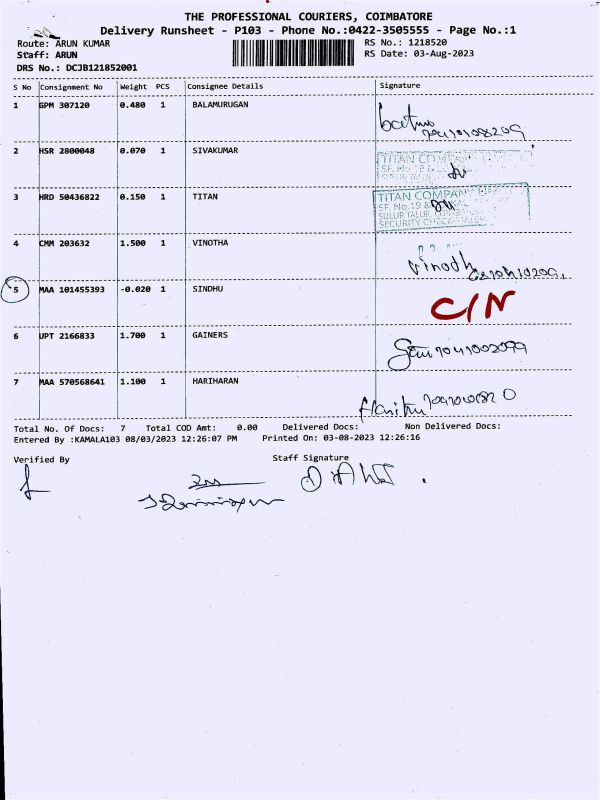 THE PROFESSIONAL COURIERS, COIMBATORE
Delivery Runsheet - P103 - Phone No.:0422-3505555 - Page No.:1
Route: ARUN KUMAR
RS No.: 1218520
Staff: ARUN
RS Date: 03-Aug-2023
DRS No.: DCJB121852001
S No Consignment No Weight PCS Consignee Details Signature
1 GPM 307120 0.480 1 BALAMURUGAN
2 HSR 2800048 0.070 1 SIVAKUMAR
TITAN COM
3 HRD 50436822 0.150 1 TITAN
TITAN COMPANY
SF. No.19 &
SULUR TALUK
SECURITY CHECK
4 CMM 203632 1.500 1 VINOTHA
Vinodh
5 MAA 101455393 -0.020 1 SINDHU
C/N
6 UPT 2166833 1.700 1 GAINERS
7 MAA 570568641 1.100 1 HARIHARAN
Total No. Of Docs: 7 Total COD Amt: 0.00 Delivered Docs: Non Delivered Docs:
Entered By :KAMALA103 08/03/2023 12:26:07 PM Printed On: 03-08-2023 12:26:16
Verified By Staff Signature